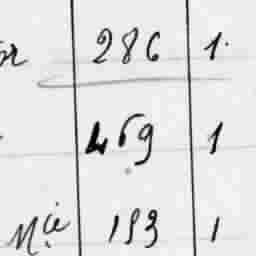 286 1.
469 1
Mcie 193 1